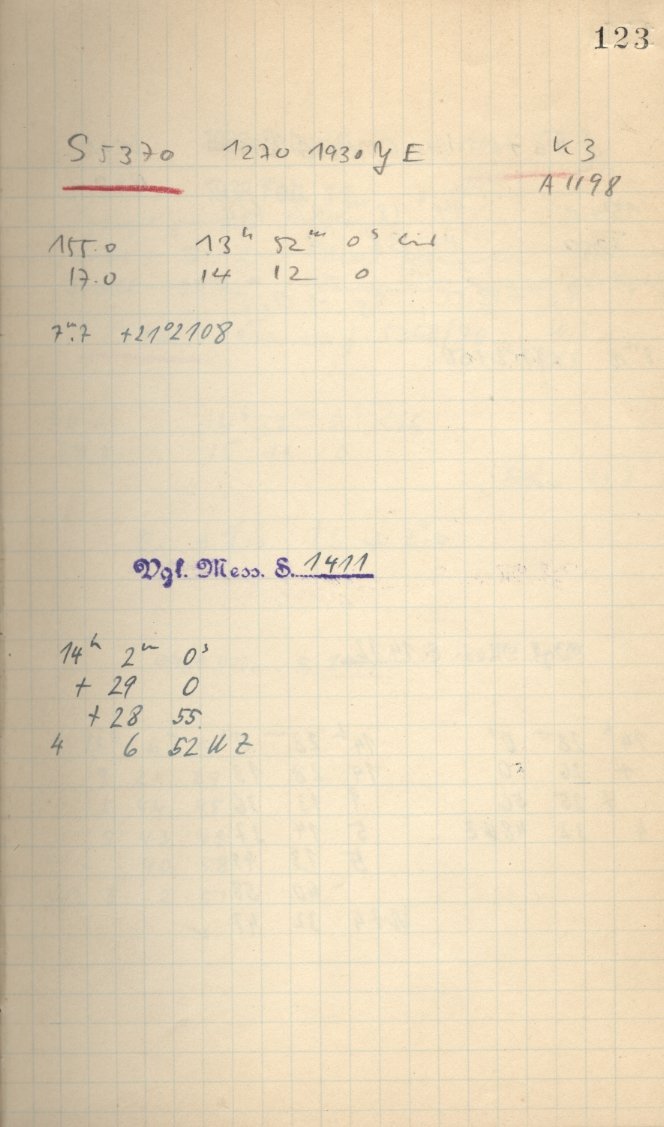 123
S 5370 1270 1930 YE K3
A 1198
155.0 13ʰ 52ᵐ 0ˢ
17.0 14 12 0
7ᵐ.7 +21°2108
Vgl. Mess. S. 1411
14ʰ 2ᵐ 0ˢ
+ 29 0
+ 28 55
4 6 52 UZ